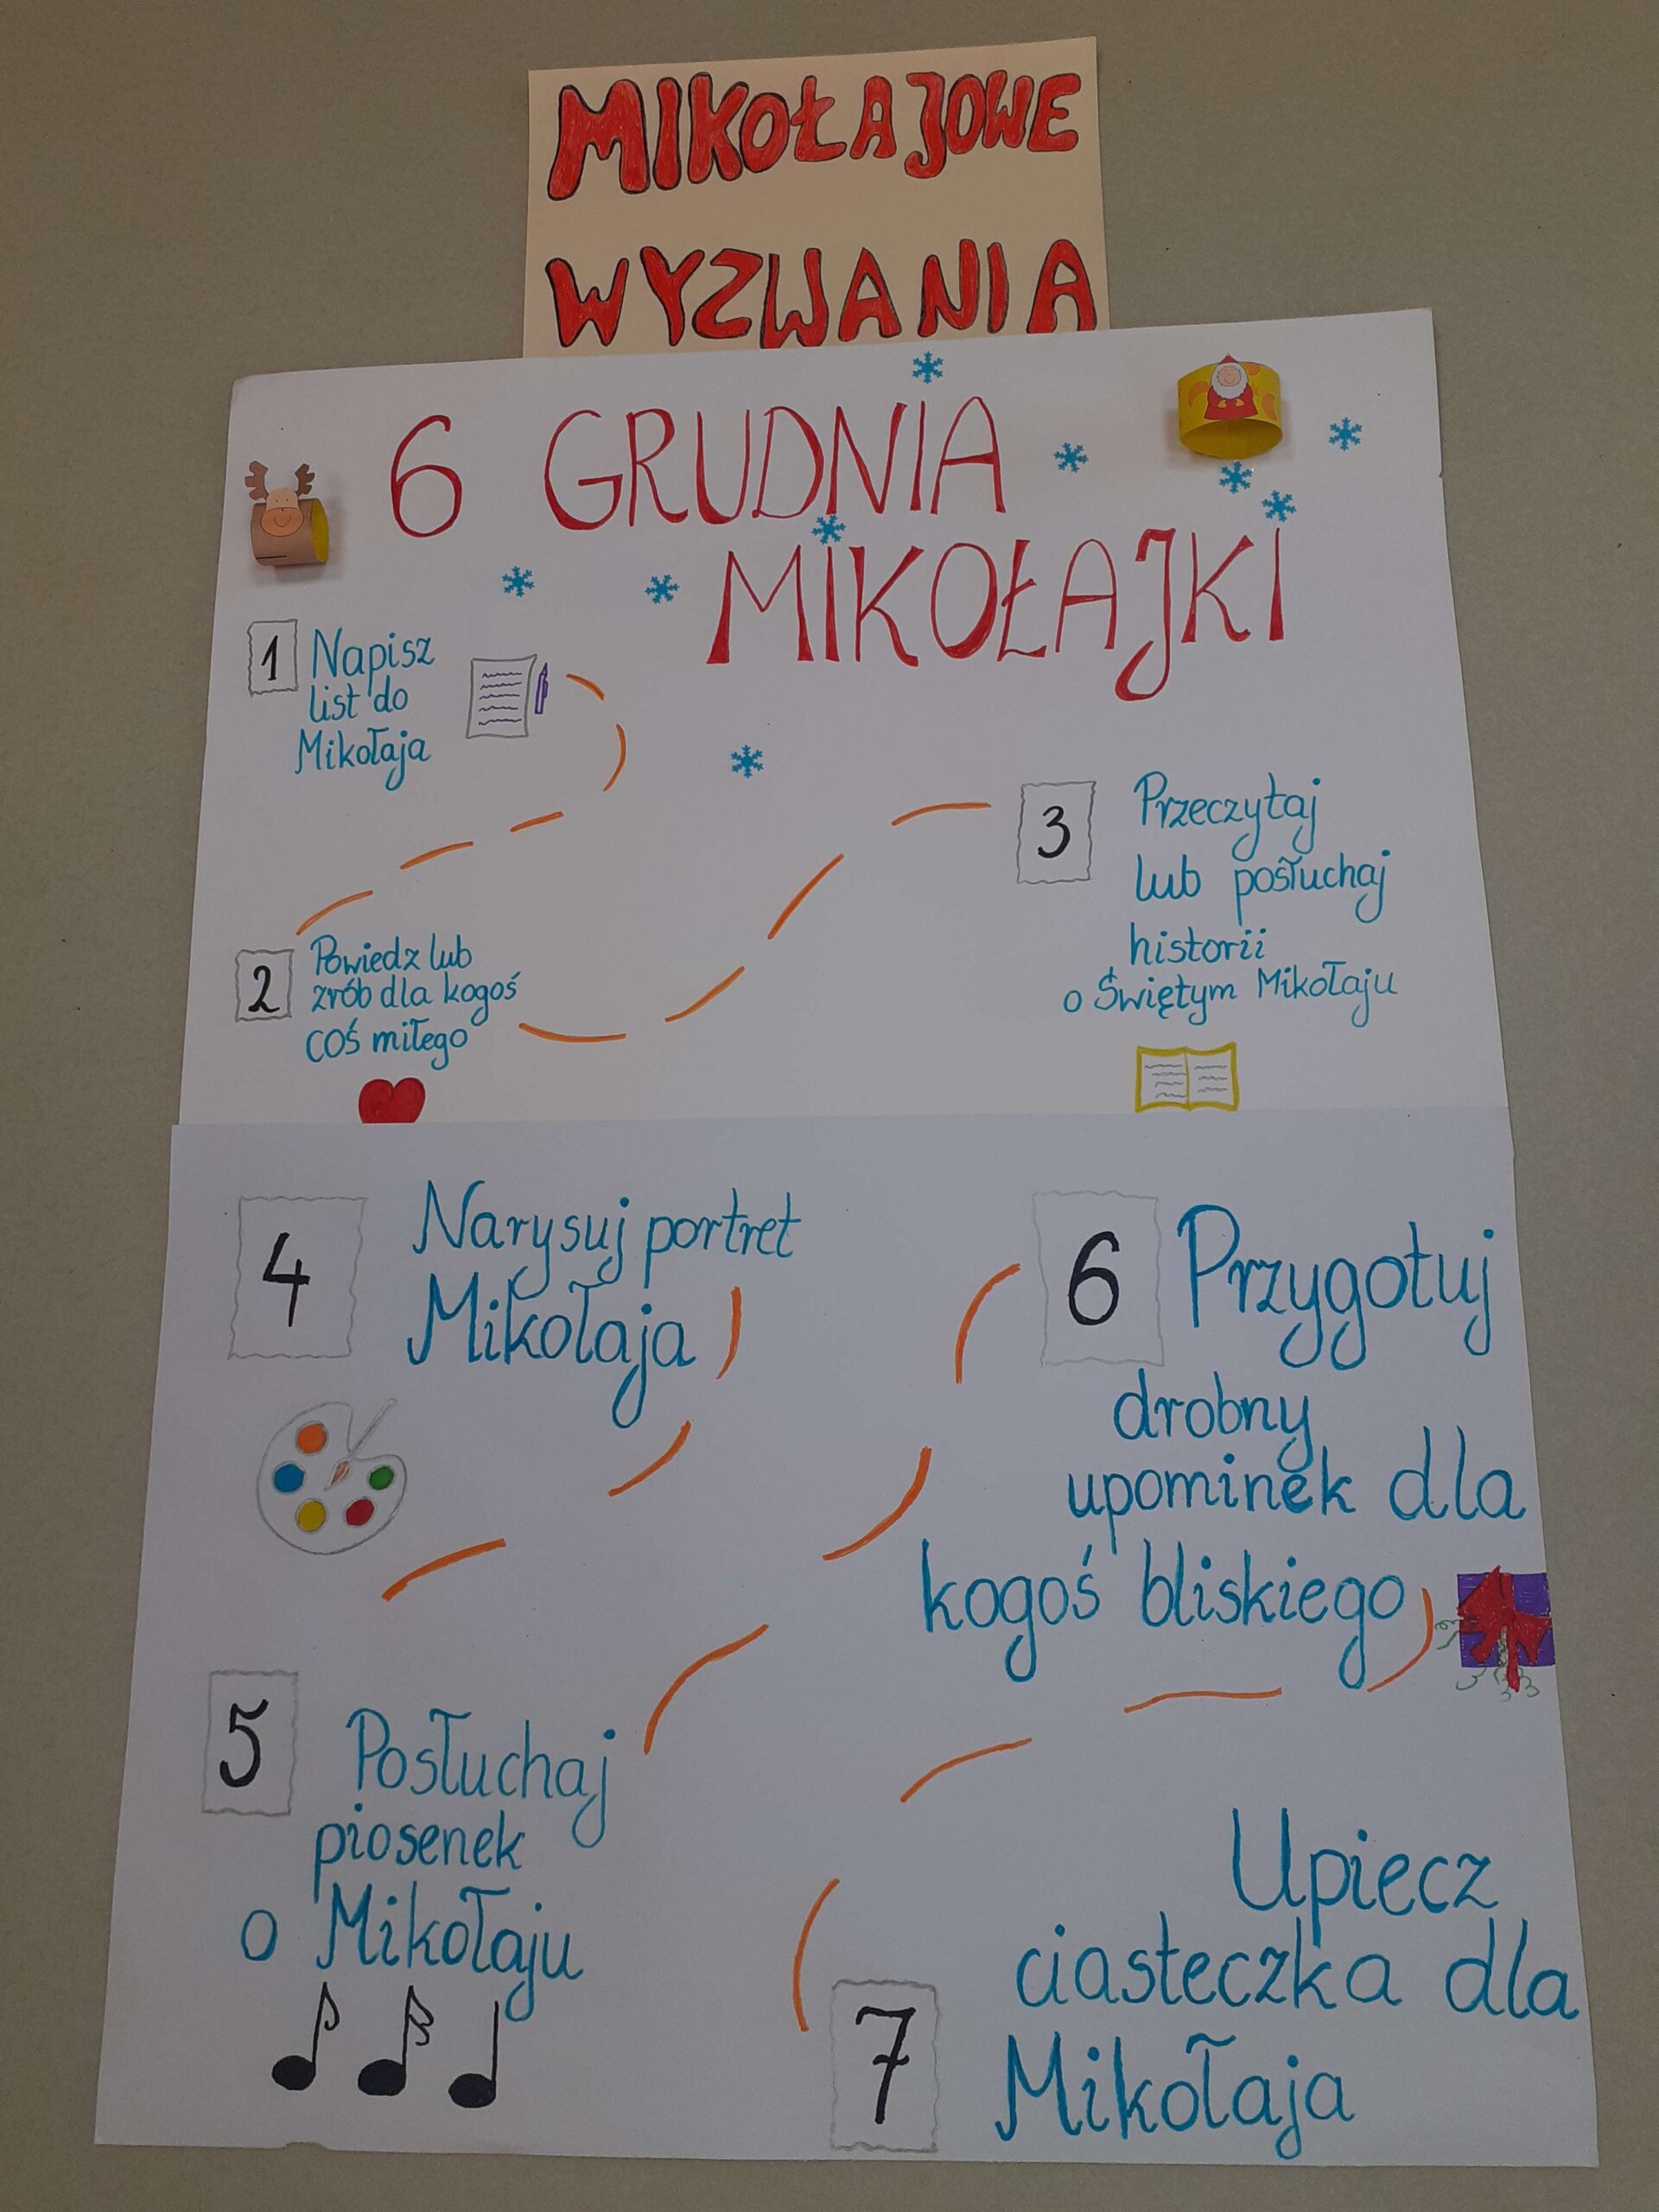 MIKOŁAJOWE
WYZWANIA
6 GRUDNIA
MIKOŁAJKI
1 Napisz
list do
Mikołaja
2 Powiedz lub
zrób dla kogoś
coś miłego
3 Przeczytaj
lub posłuchaj
historii
o Świętym Mikołaju
4 Narysuj portret
Mikołaja
5 Posłuchaj
piosenek
o Mikołaju
6 Przygotuj
drobny
upominek dla
kogoś bliskiego
7 Upiecz
ciasteczka dla
Mikołaja